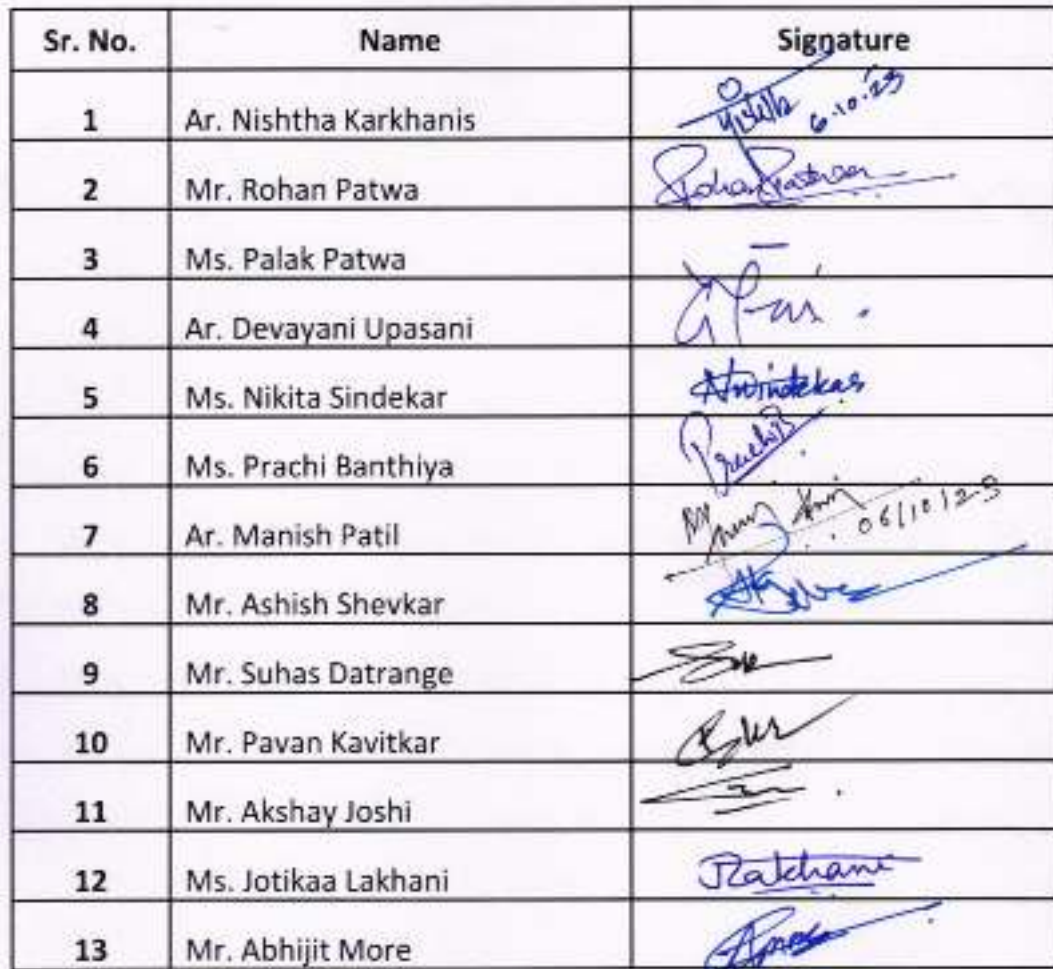 Sr. No. Name Signature
1 Ar. Nishtha Karkhanis 6.10.23
2 Mr. Rohan Patwa Rohan Patwa
3 Ms. Palak Patwa
4 Ar. Devayani Upasani
5 Ms. Nikita Sindekar
6 Ms. Prachi Banthiya PrachiB
7 Ar. Manish Patil 06/10/23
8 Mr. Ashish Shevkar
9 Mr. Suhas Datrange
10 Mr. Pavan Kavitkar
11 Mr. Akshay Joshi
12 Ms. Jotikaa Lakhani
13 Mr. Abhijit More